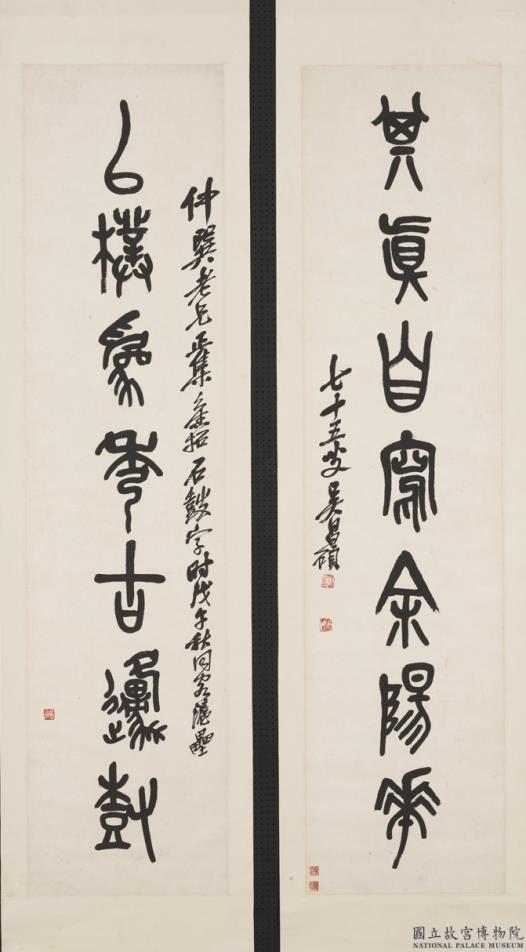 其真自寫余陽華
七十五叟吳昌碩
仲巽老兄正集舊拓石鼓字時戊午秋同客滬壘
以樸為秀古邍尌
國立故宮博物院
NATIONAL PALACE MUSEUM